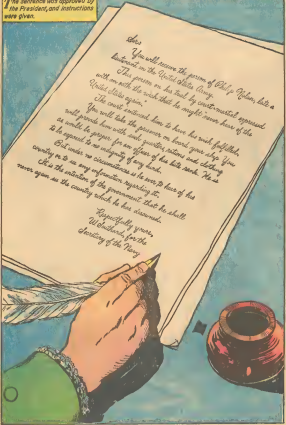 The sentence was approved by
the President, and instructions
were given.
Sir:
You will receive the person of Philip Nolan, late a
lieutenant in the United States Army.
This person on his trial by court-martial expressed
with an oath the wish that he might "never hear of the
United States again."
The court sentenced him to have his wish fulfilled.
You will take the prisoner on board your ship. You
will provide him with such quarters, rations and clothing
as would be proper for an officer of his late rank. He is
to be exposed to no indignity of any kind.
But under no circumstances is he ever to hear of his
country or to see any information regarding it.
It is the intention of the government that he shall
never again see the country which he has disowned.
Respectfully yours,
W. Southard, for the
Secretary of the Navy